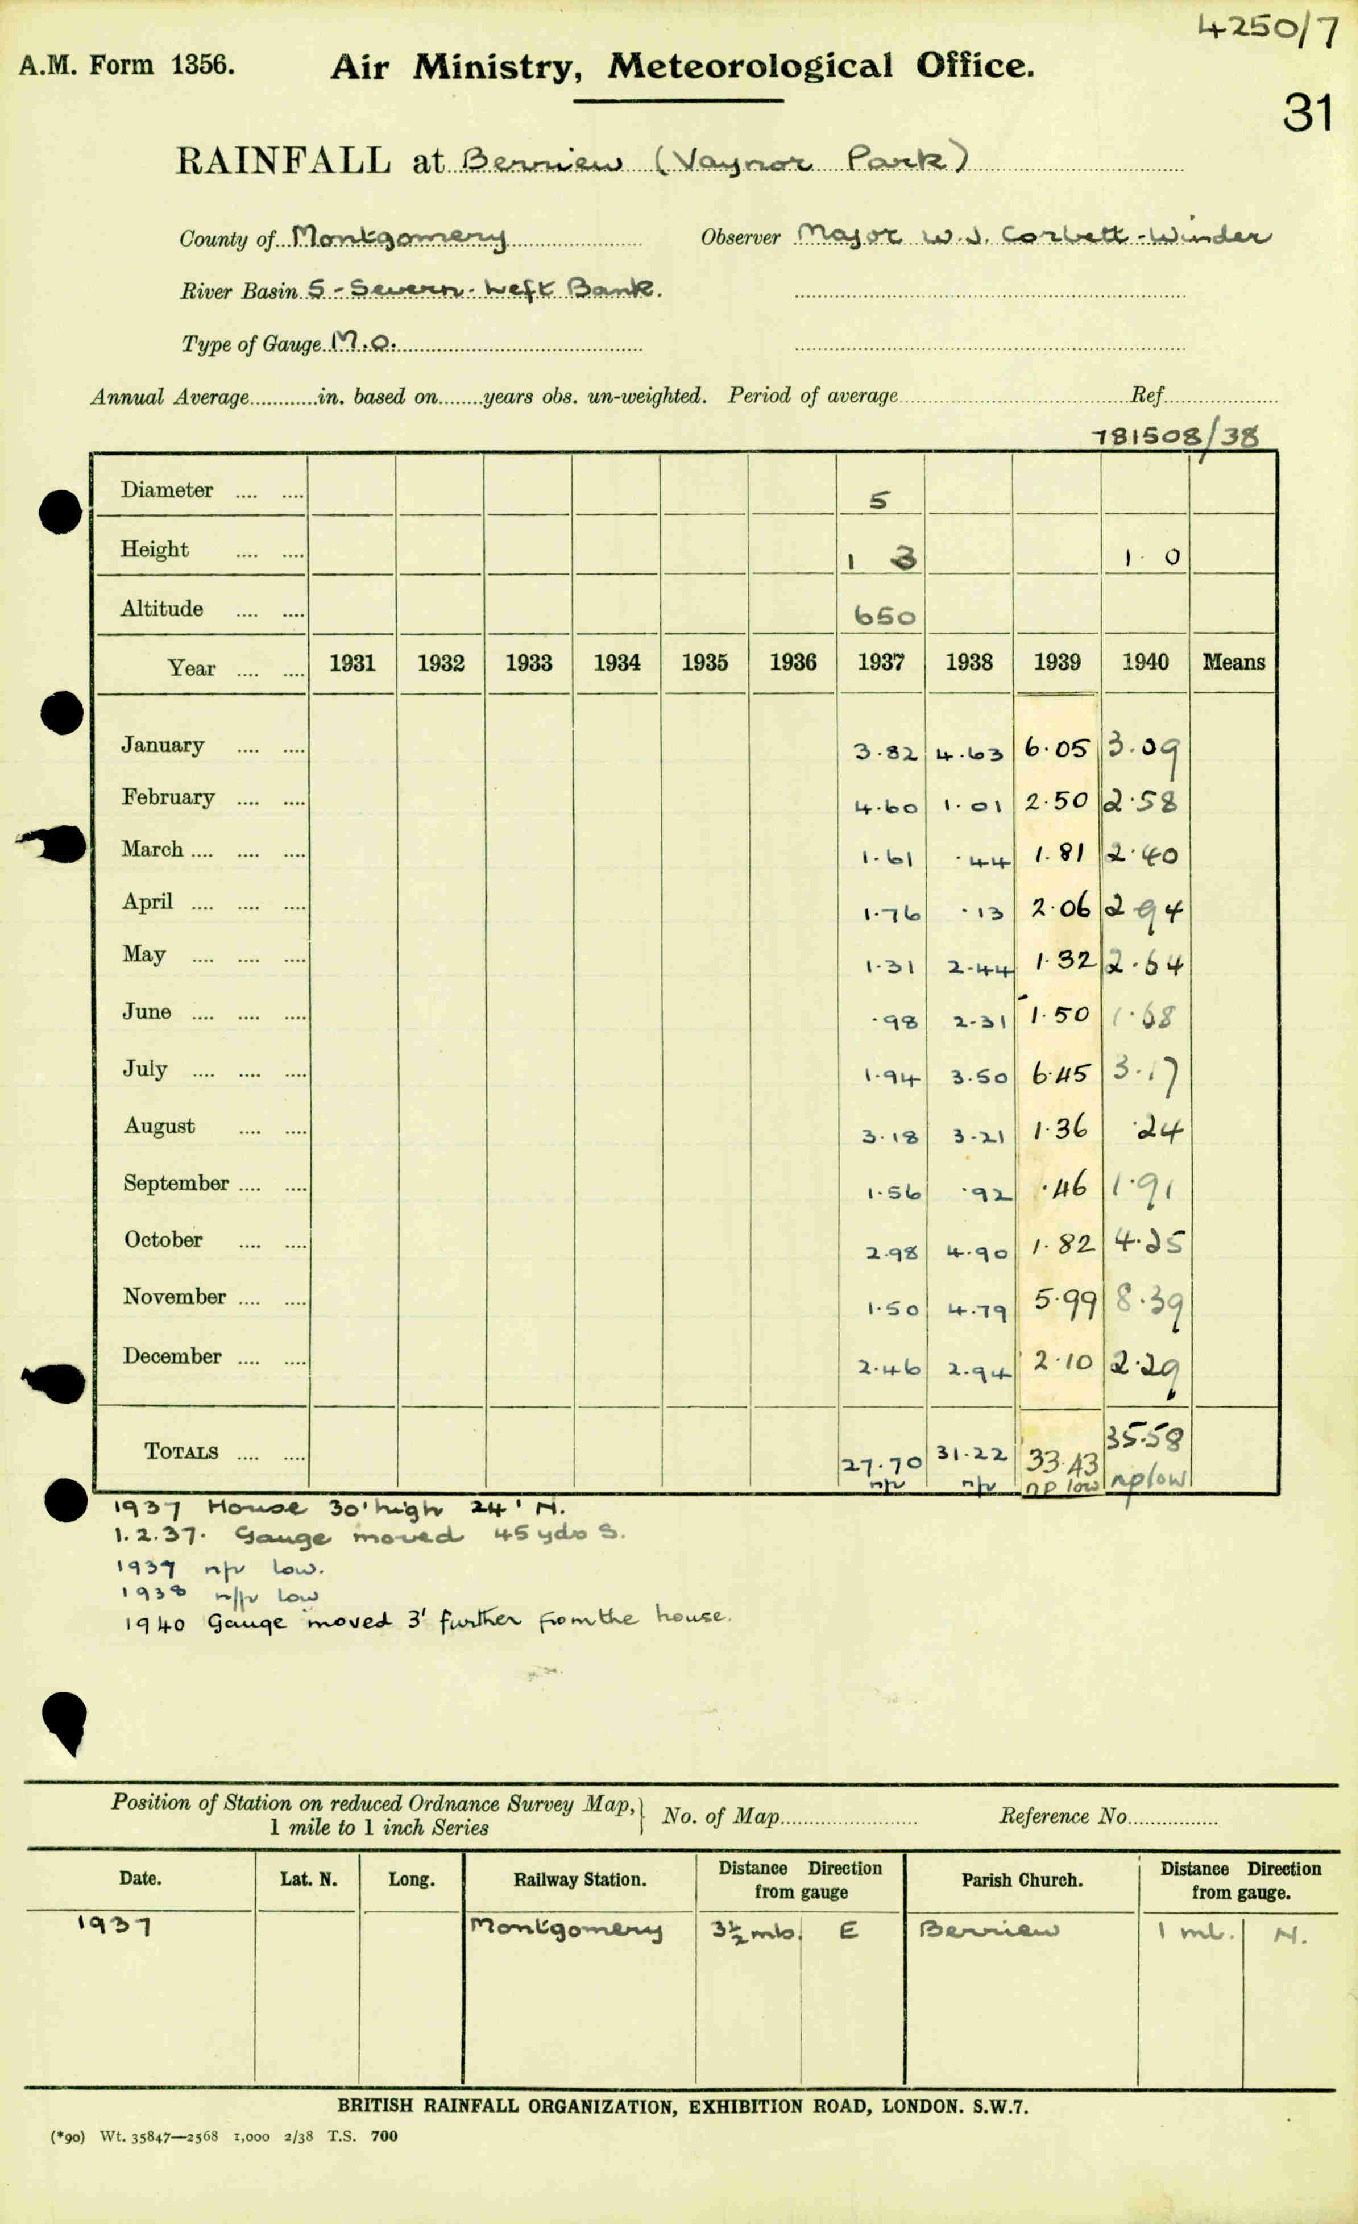 4250/7
A.M. Form 1356. Air Ministry, Meteorological Office.
31
RAINFALL at Berriew (Vaynor Park)
County of Montgomery Observer Major W.J. Corbett-Winder
River Basin 5 - Severn - Left Bank.
Type of Gauge M.O.
Annual Average............in. based on........years obs. un-weighted. Period of average Ref.
781508/38
Diameter .... .... 5
Height .... .... 1 3 1 0
Altitude .... .... 650
Year .... .... 1931 1932 1933 1934 1935 1936 1937 1938 1939 1940 Means
January .... .... 3.82 4.63 6.05 3.09
February .... .... 4.60 1.01 2.50 2.58
March .... .... .... 1.61 .44 1.81 2.40
April .... .... .... 1.76 .13 2.06 2.94
May .... .... .... 1.31 2.44 1.32 2.64
June .... .... .... .98 2.31 1.50 1.68
July .... .... .... 1.94 3.50 6.45 3.17
August .... .... 3.18 3.21 1.36 .24
September .... .... 1.56 .92 .46 1.91
October .... .... 2.98 4.90 1.82 4.25
November .... .... 1.50 4.79 5.99 8.39
December .... .... 2.46 2.94 2.10 2.29
TOTALS .... .... 27.70 31.22 33.43 35.58
n/p n/p np low np low
1937 House 30' high 24' N.
1.2.37. Gauge moved 45 yds S.
1937 n/p low.
1938 n/p low
1940 Gauge moved 3' further from the house.
Position of Station on reduced Ordnance Survey Map, 1 mile to 1 inch Series } No. of Map Reference No.
Date. Lat. N. Long. Railway Station. Distance Direction from gauge Parish Church. Distance Direction from gauge.
1937 Montgomery 3½ mls. E Berriew 1 ml. N.
BRITISH RAINFALL ORGANIZATION, EXHIBITION ROAD, LONDON. S.W.7.
(*90) Wt. 35847—2568 1,000 2/38 T.S. 700